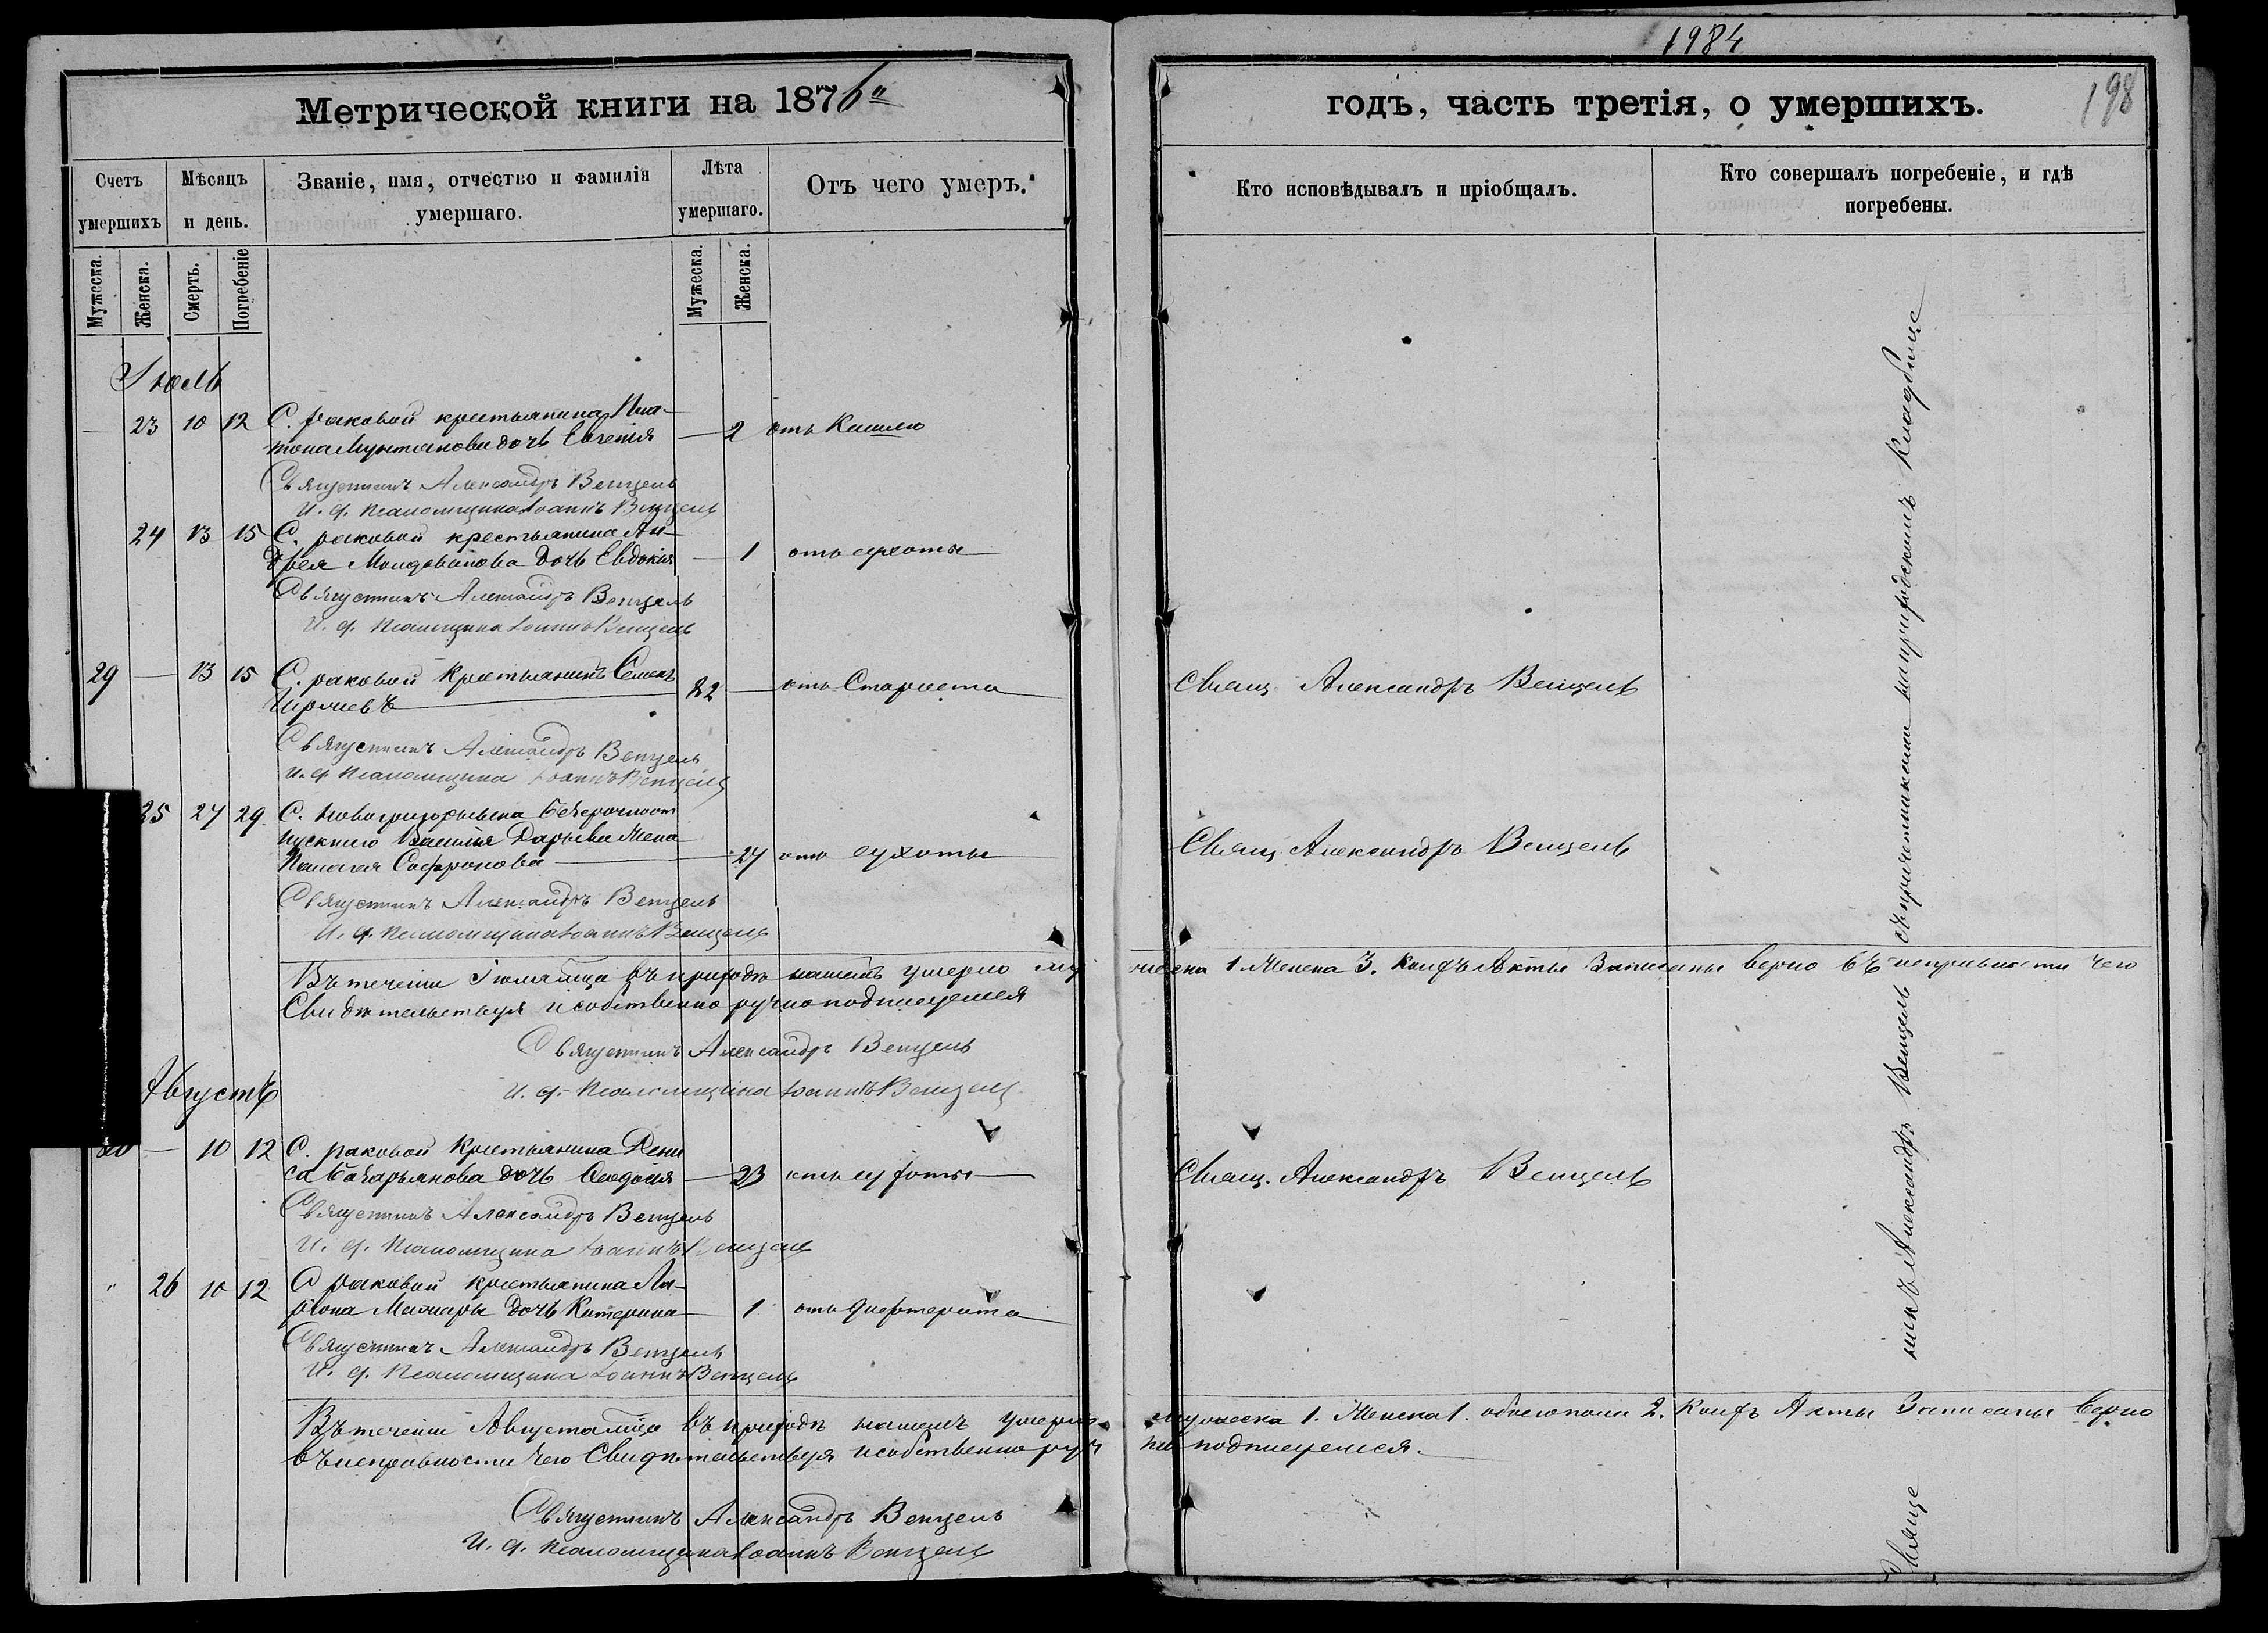 1984
198
Метрической книги на 1876й
годъ, часть третія, о умершихъ.
Счетъ умершихъ
Мѣсяцъ и день.
Званіе, имя, отчество и фамилія умершаго.
Лѣта умершаго.
Отъ чего умеръ.
Кто исповѣдывалъ и пріобщалъ.
Кто совершалъ погребеніе, и гдѣ погребены.
Мужеска. Женска. Смерть. Погребеніе Мужеска. Женска.
Іюль
— 23 10 12 С. раковой крестьянина Пла-
тона Мунтянова дочь Евгенія — 2 отъ Кашлю
Священникъ Александръ Венцель
И. д. псаломщика Іоаннъ Венцель
24 13 15 С. раковой крестьянина Ан-
дрея Молдованова дочь Евдокія — 1 отъ сухоты
Священникъ Александръ Венцель
И. д. псаломщика Іоаннъ Венцель
29 — 13 15 С. раковой Крестьянинъ Семенъ 82 — отъ Староста Свящ Александръ Венцель
Священникъ Александръ Венцель
И. д. псаломщика Іоаннъ Венцель
25 27 29 С. Новогригорьевка безсрочноот
пускного Василія Дарыева жена
Палагея Сафронова — 27 отъ сухоты Свящ Александръ Венцель
Священникъ Александръ Венцель
И. д. псаломщика Іоаннъ Венцель
Въ теченіи Іюля мца въ приходѣ нашемъ умерло му жеска 1. Женска 3. Акты Записаны верно въ исправности чего
Свидѣтельствуя и собственно ручно подписуемся
Священникъ Александръ Венцель
И. д. псаломщика Іоаннъ Венцель
Августъ
— 10 12 С. раковой Крестьянина Дени
са дочь Феодосія — 23 отъ сухоты — Свящ. Александръ Венцель
Священникъ Александръ Венцель
И. д. псаломщика Іоаннъ Венцель
" 26 10 12 С раковой крестьянина Ла-
ріона дочь Катерина — 1 отъ дифтерита
Священникъ Александръ Венцель
И. д. псаломщика Іоаннъ Венцель
Въ теченіи Августа мца въ приходѣ нашемъ умерло мужеска 1. Женска 1. обоего пола 2. Акты Записаны верно
въ исправности чего Свидѣтельствуя и собственно руч но подписуемся.
Священникъ Александръ Венцель
И. д. псаломщика Іоаннъ Венцель
Священникъ Александръ Венцель съ причетниками на приходскомъ Кладбище